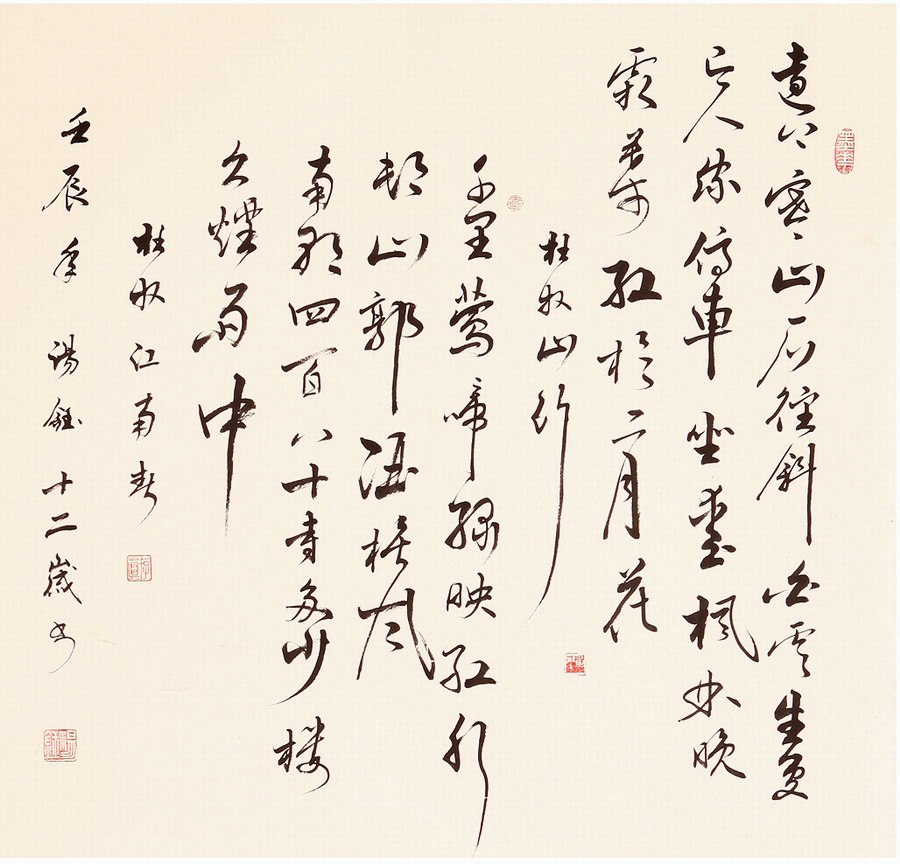 遠上寒山石徑斜白雲生處
有人家停車坐愛楓林晚
霜葉紅於二月花
杜牧山行
千里鶯啼綠映紅水
邨山郭酒旗風
南朝四百八十寺多少楼
台煙雨中
杜牧江南春
壬辰年湯鈺十二歲书